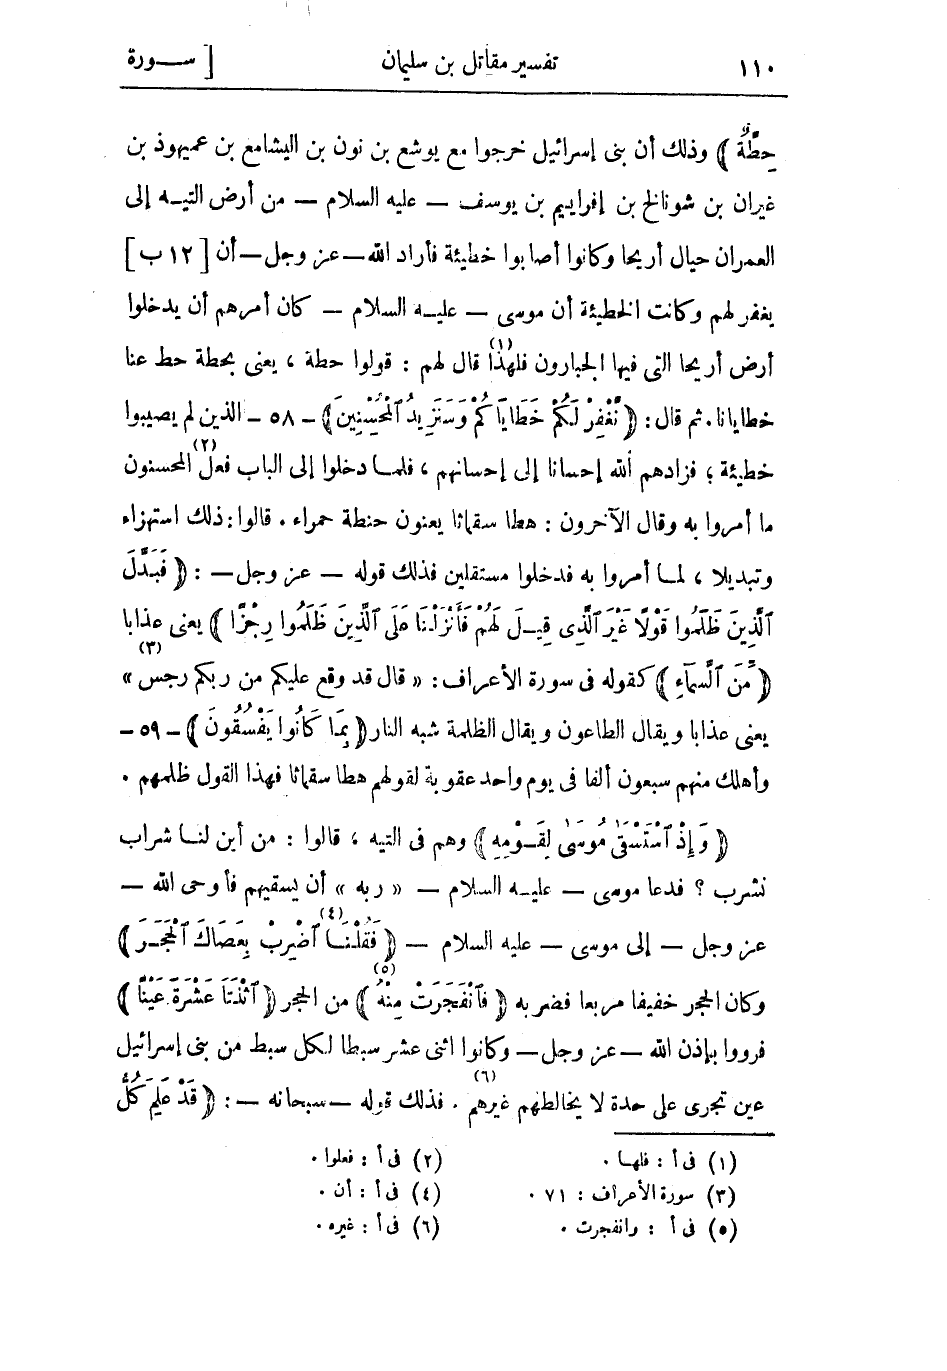 ١١٠ تفسير مقاتل بن سليمان [ ســورة
حِطَّةٌ ﴾ وذلك أن بنى إسرائيل خرجوا مع يوشع بن نون بن اليشامع بن عميهوذ بن
غيران بن شونالخ بن إفراييم بن يوسف — عليه السلام — من أرض التيـه إلى
العمران حيال أريحا وكانوا أصابوا خطيئة فأراد الله — عز وجل — أن [ ١٢ ب ]
يغفر لهم وكانت الخطيئة أن موسى — عليـه السلام — كان أمرهم أن يدخلوا
أرض أريحا التى فيها الجبارون فلهذا (١) قال لهم : قولوا حطة ، يعنى بحطة حط عنا
خطايانا. ثم قال : ﴿ نَّغْفِرْ لَكُمْ خَطَايَاكُمْ وَسَنَزِيدُ ٱلْمُحْسِنِينَ ﴾ – ٥٨ – الذين لم يصيبوا
خطيئة ؛ فزادهم الله إحسانا إلى إحسانهم ، فلمـا دخلوا إلى الباب فعل (٢) المحسنون
ما أمروا به وقال الآخرون : هطا سقماثا يعنون حنطة حمراء . قالوا : ذلك استهزاء
وتبديلا ، لمـا أمروا به فدخلوا مستقلين فذلك قوله — عز وجل — : ﴿ فَبَدَّلَ
ٱلَّذِينَ ظَلَمُوا قَوْلًا غَيْرَ ٱلَّذِى قِيـلَ لَهُمْ فَأَنْزَلْنَا عَلَى ٱلَّذِينَ ظَلَمُوا رِجْزًا ﴾ يعنى عذابا
﴿ مِّنَ ٱلسَّمَآءِ ﴾ كقوله فى سورة الأعراف : « قال قد وقع عليكم من ربكم رجس » (٣)
يعنى عذابا ويقال الطاعون ويقال الظلمة شبه النار ﴿ بِمَا كَانُوا يَفْسُقُونَ ﴾ – ٥٩ –
وأهلك منهم سبعون ألفا فى يوم واحد عقوبة لقولهم هطا سقماثا فهذا القول ظلمهم .
﴿ وَإِذْ ٱسْتَسْقَىٰ مُوسَىٰ لِقَـوْمِهِ ﴾ وهم فى التيه ، قالوا : من أين لنـا شراب
نشرب ؟ فدعا موسى — عليـه السلام — « ربه » أن يسقيهم فأوحى الله —
عز وجل — إلى موسى — عليه السلام — ﴿ فَقُلْنَـا (٤) ٱضْرِبْ بِعَصَاكَ ٱلْحَجَـرَ ﴾
وكان الحجر خفيفا مربعا فضربه ﴿ فَٱنْفَجَرَتْ مِنْهُ (٥) ﴾ من الحجر ﴿ ٱثْنَتَا عَشْرَةَ عَيْنًا ﴾
فرووا بإذن الله — عز وجل — وكانوا اثنى عشر سبطا لكل سبط من بنى إسرائيل
عين تجرى على حدة لا يخالطهم غيرهم (٦) . فذلك قوله — سبحانه — : ﴿ قَدْ عَلِمَ كُلُّ
(١) فى أ : فلهـا . (٢) فى أ : فعلوا .
(٣) سورة الأعراف : ٧١ . (٤) فى أ : أن .
(٥) فى أ : وانفجرت . (٦) فى أ : غيره .